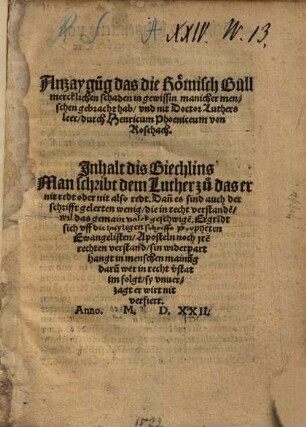 R. S. A XXIV. W. 13,
Anzaygũg das die Römisch Bull
mercklichen schaden in gewissin manicher men-
schen gebracht hab/ vnd nit Doctor Luthers
leer/ durch Henricum Phoeniceum von
Roschach.
Inhalt dis Biechlins
Man schribt dem Luther zů das er
nit redt oder nit also redt. Dañ es sind auch der
schrifft gelerten wenig/ die in recht verstandẽ/
wil das gemain volck geschwigẽ. Er grĩdt
sich vff die hayligen schrifft Propheten
Ewangelisten/ Aposteln noch jrẽ
rechten verstand/ sin widerpart
hangt in menschen mainũg
darũ wer in recht v̄stat
im folgt/ sy vnuer-
zagt er wirt nit
verfiert.
Anno. M. D. XXII.
1522